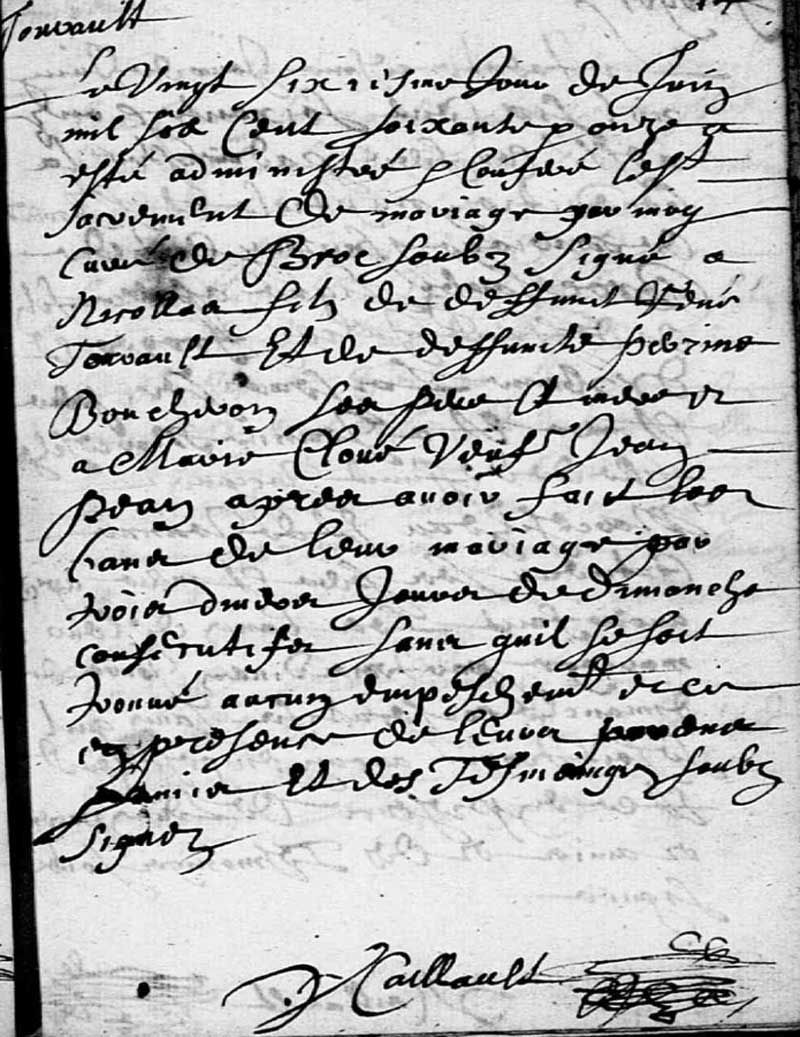 Torvault
Le Vingt sixiesme Jour de Juin
mil six Cent soixante & onze a
esté administré & Conferé le st
sacrement De mariage par moy
Curé de Broc soubz signé a
Nicollas filz de deffunct René
Torvault Et de deffuncte perrine
Boucheron ses pere Et mere et
a Marie Cloué Veufe Jean
pean apres avoir fait les
bans de leur mariage par
trois divers Jours de Dimanche
consecutifes sans quil se soit
trouvé aucun empeschemt et ce
en presence de leurs parens
amis Et des Tesmoings soubz
signez
Caillault